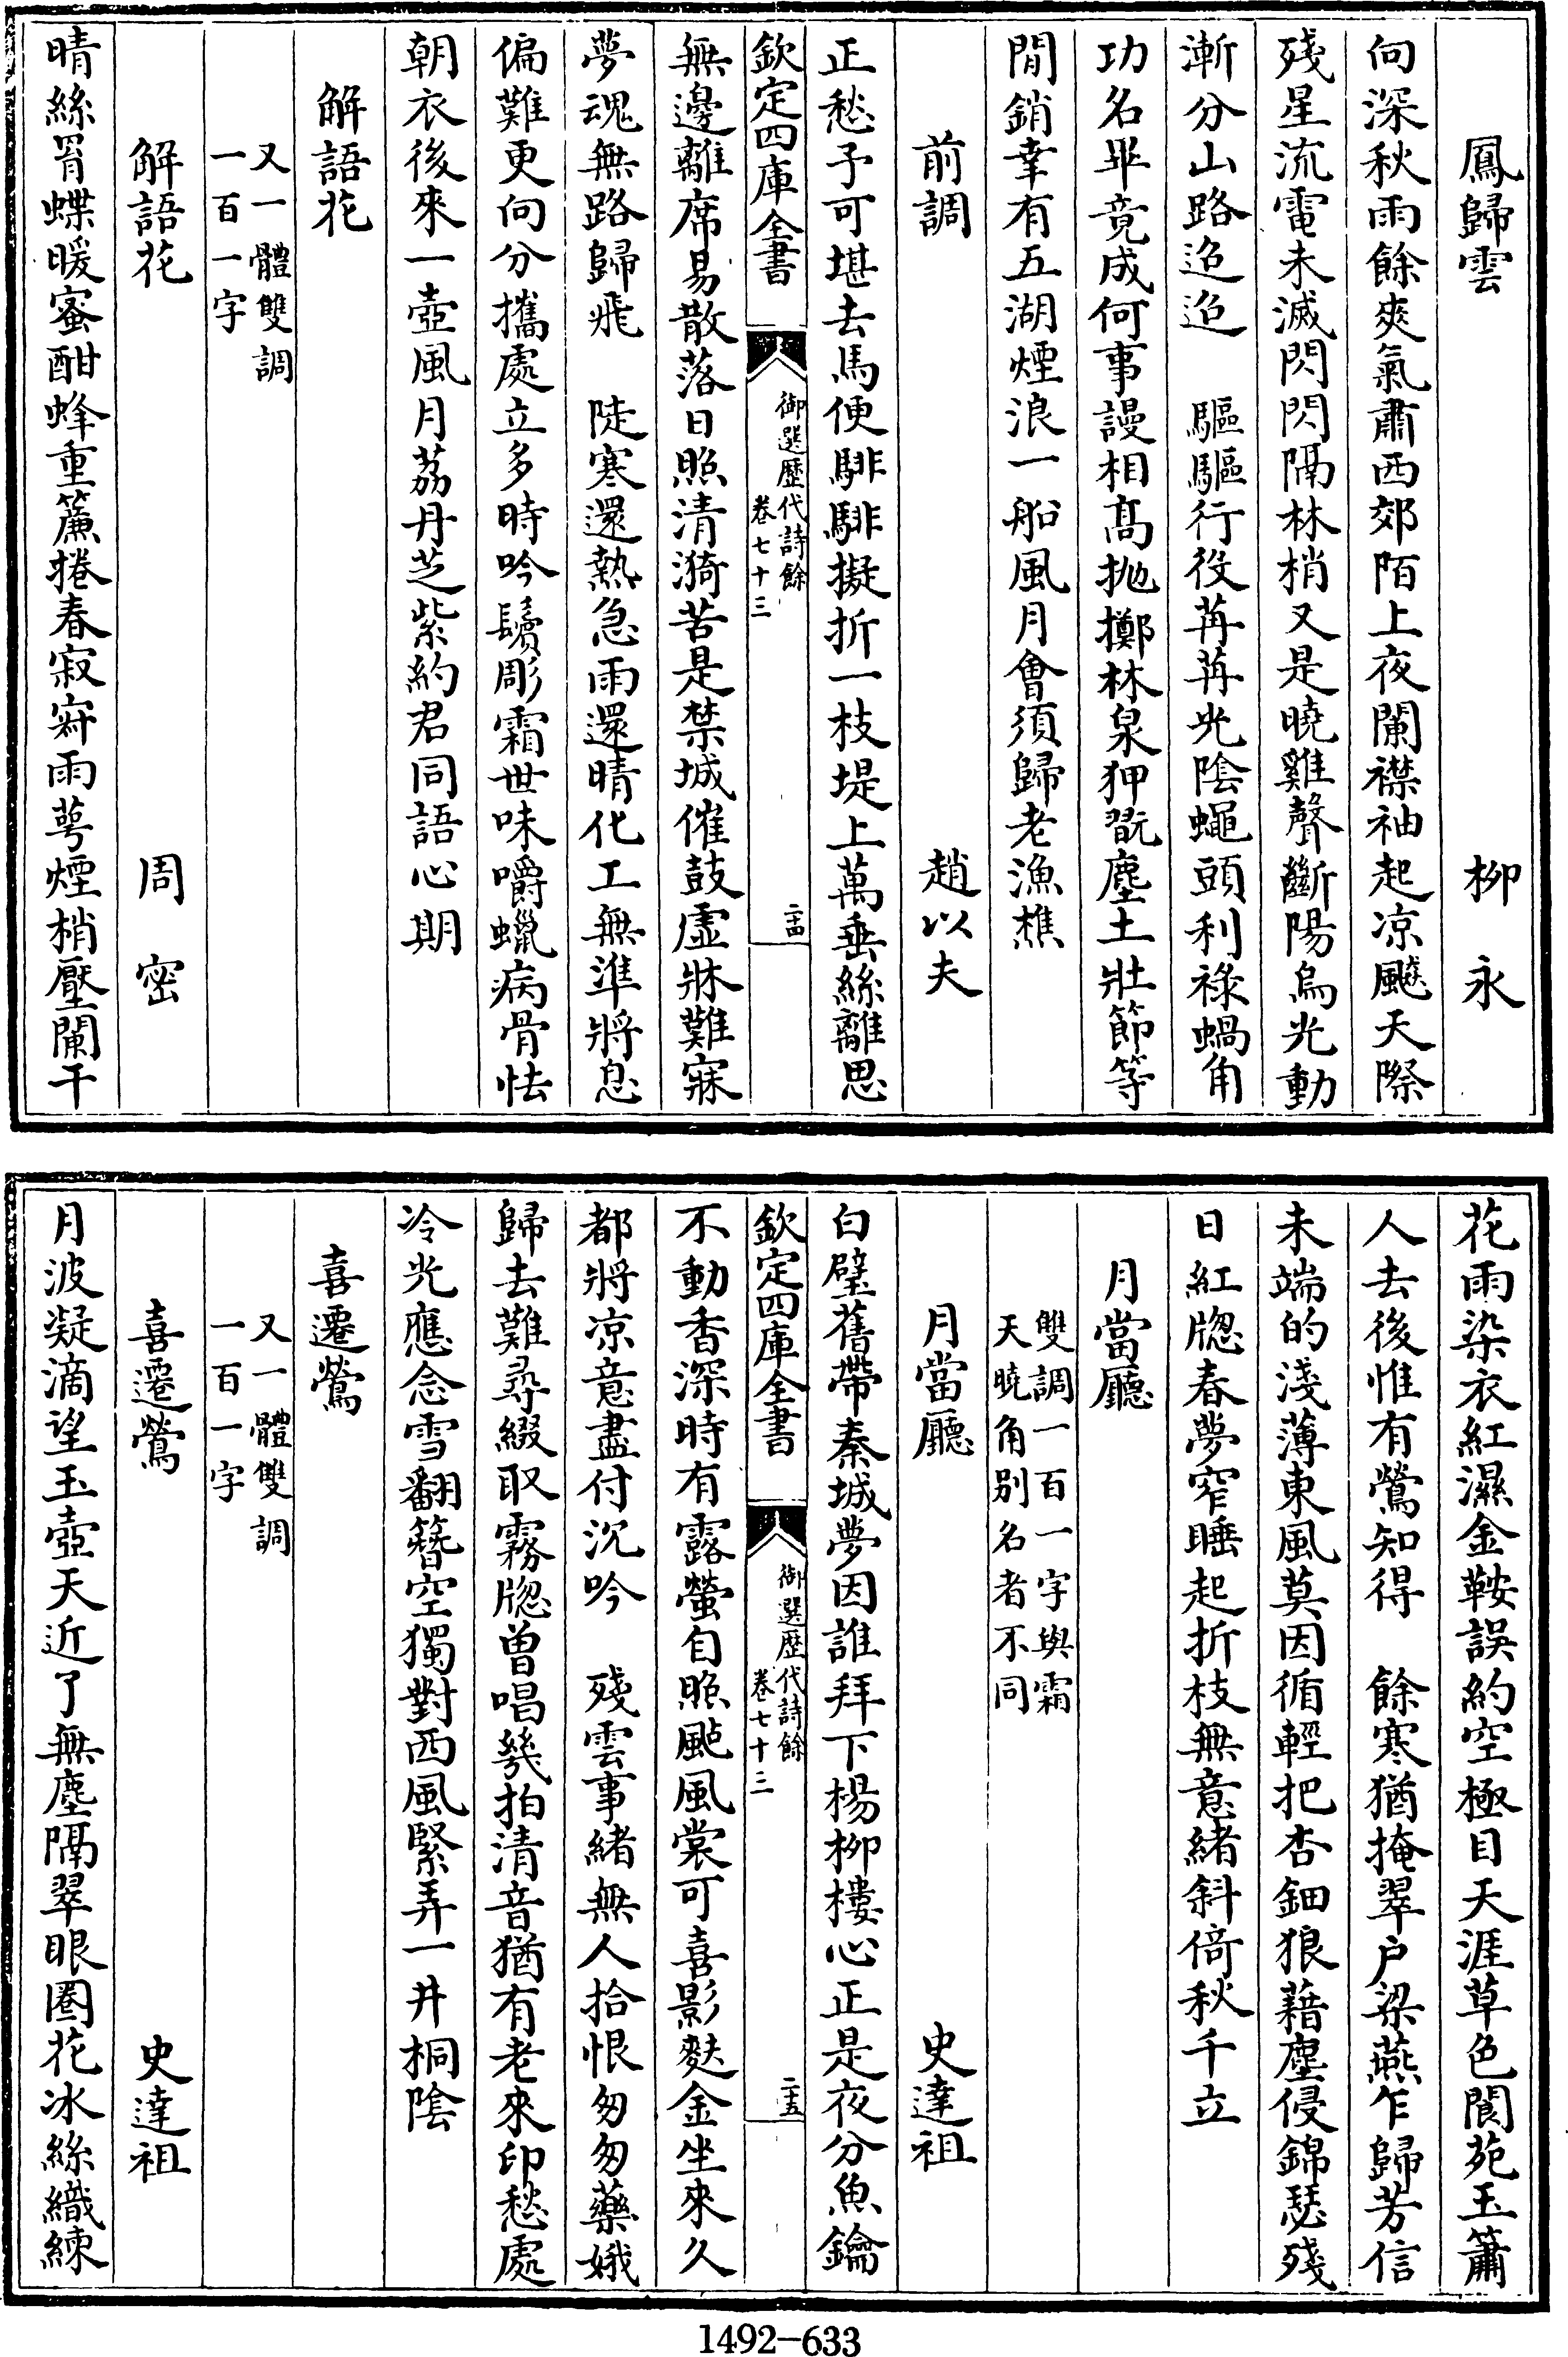 鳳歸雲　柳永
向深秋雨餘爽氣肅西郊陌上夜闌襟袖起凉颸天際
殘星流電未滅閃閃隔林梢又是曉雞聲斷陽烏光動
漸分山路迢迢　驅驅行役苒苒光陰蠅頭利祿蝸角
功名畢竟成何事謾相髙抛擲林泉狎翫塵土壯節等
閒銷幸有五湖煙浪一船風月會須歸老漁樵
前調　趙以夫
正愁予可堪去馬便騑騑擬折一枝堤上萬垂絲離思
欽定四庫全書
御選歷代詩餘
卷七十三
二十四
無邊離席易散落日照清漪苦是禁城催鼓虛牀難寐
夢魂無路歸飛　陡寒還熱急雨還晴化工無準將息
偏難更向分攜處立多時吟鬢彫霜世味嚼蠟病骨怯
朝衣後來一壺風月荔丹芝紫約君同語心期
解語花
又一體雙調
一百一字
解語花　周密
晴絲罥蝶暖蜜酣蜂重簾捲春寂寂雨萼煙梢壓闌干
花雨染衣紅濕金鞍誤約空極目天涯草色閬苑玉簫
人去後惟有鶯知得　餘寒猶掩翠户梁燕乍歸芳信
未端的淺薄東風莫因循輕把杏鈿狼藉塵侵錦瑟殘
日紅牕春夢窄睡起折枝無意緒斜倚秋千立
月當廳
雙調一百一字與霜
天曉角别名者不同
月當廳　史達祖
白璧舊帶秦城夢因誰拜下楊柳樓心正是夜分魚鑰
欽定四庫全書
御選歷代詩餘
卷七十三
二十五
不動香深時有露螢自照颭風裳可喜影麩金坐來久
都將凉意盡付沉吟　殘雲事緒無人拾恨匆匆藥娥
歸去難尋綴取霧牕曽唱幾拍清音猶有老來印愁處
冷光應念雪翻簪空獨對西風緊弄一井桐陰
喜遷鶯
又一體雙調
一百一字
喜遷鶯　史達祖
月波凝滴望玉壺天近了無塵隔翠眼圈花冰絲織練
1492-633